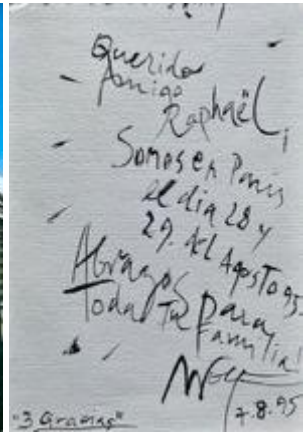 Querido
Amigo
Raphaël,
Somos en Paris
el dia 28 y
29. del Agosto 95.
Abrazos para
Toda Tu Familia!
7.8.95
"3 Gracias"